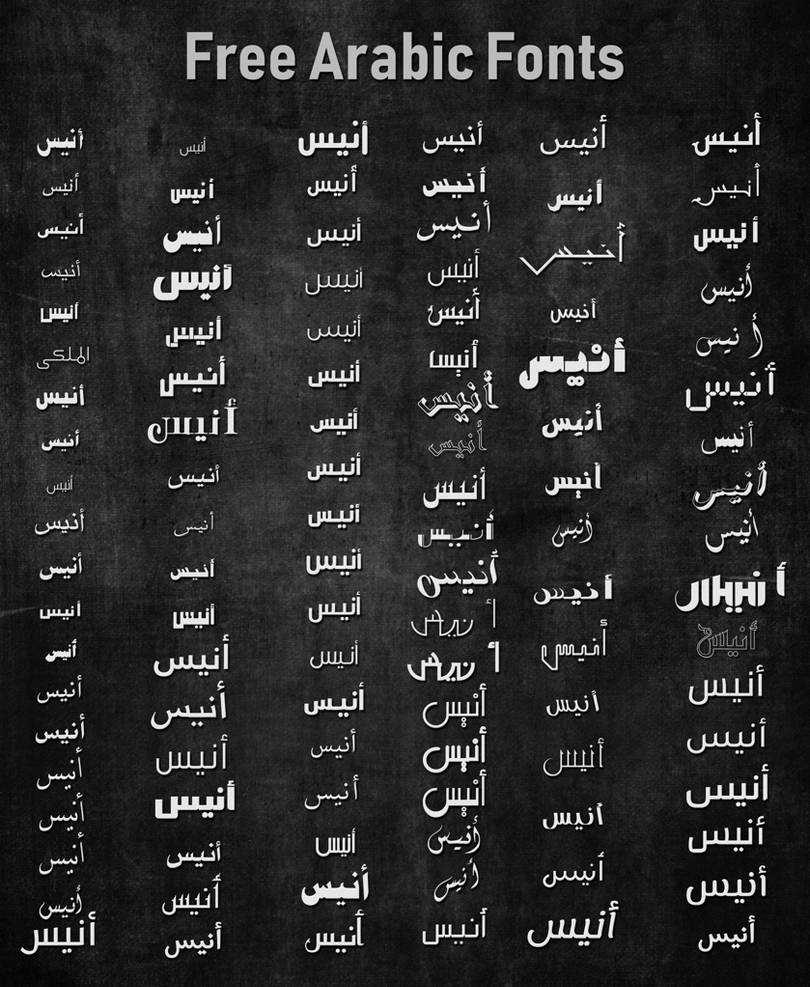 Free Arabic Fonts
أنيس
أنيس
أنيس
أنيس
أنيس
الملكى
أنيس
أنيس
أنيس
أنيس
أنيس
أنيس
أنيس
أنيس
أنيس
أنيس
أنيس
أنيس
أنيس
أنيس
أنيس
أنيس
أنيس
أنيس
أنيس
أنيس
أنيس
أنيس
أنيس
أنيس
أنيس
أنيس
أنيس
أنيس
أنيس
أنيس
أنيس
أنيس
أنيس
أنيس
أنيس
أنيس
أنيس
أنيس
أنيس
أنيس
أنيس
أنيس
أنيس
أنيس
أنيس
أنيس
أنيس
أنيس
أنيس
أنيس
أنيس
أنيس
أنيس
أنيس
أنيس
أنيس
أنيس
أنيس
أنيس
أنيس
أنيس
أنيس
أنيس
أنيس
أنيس
أنيس
أنيس
أنيس
أنيس
أنيس
أنيس
أنيس
أنيس
أنيس
أنيس
أنيس
أنيس
أنيس
أنيس
أنيس
أنيس
أنيس
أنيس
أنيس
أنيس
أنيس
أنيس
أنيس
أنيس
أنيس
أنيس
أنيس
أنيس
أنيس
أنيس
أنيس
أنيس
أنيس
أنيس
أنيس
أنيس
أنيس